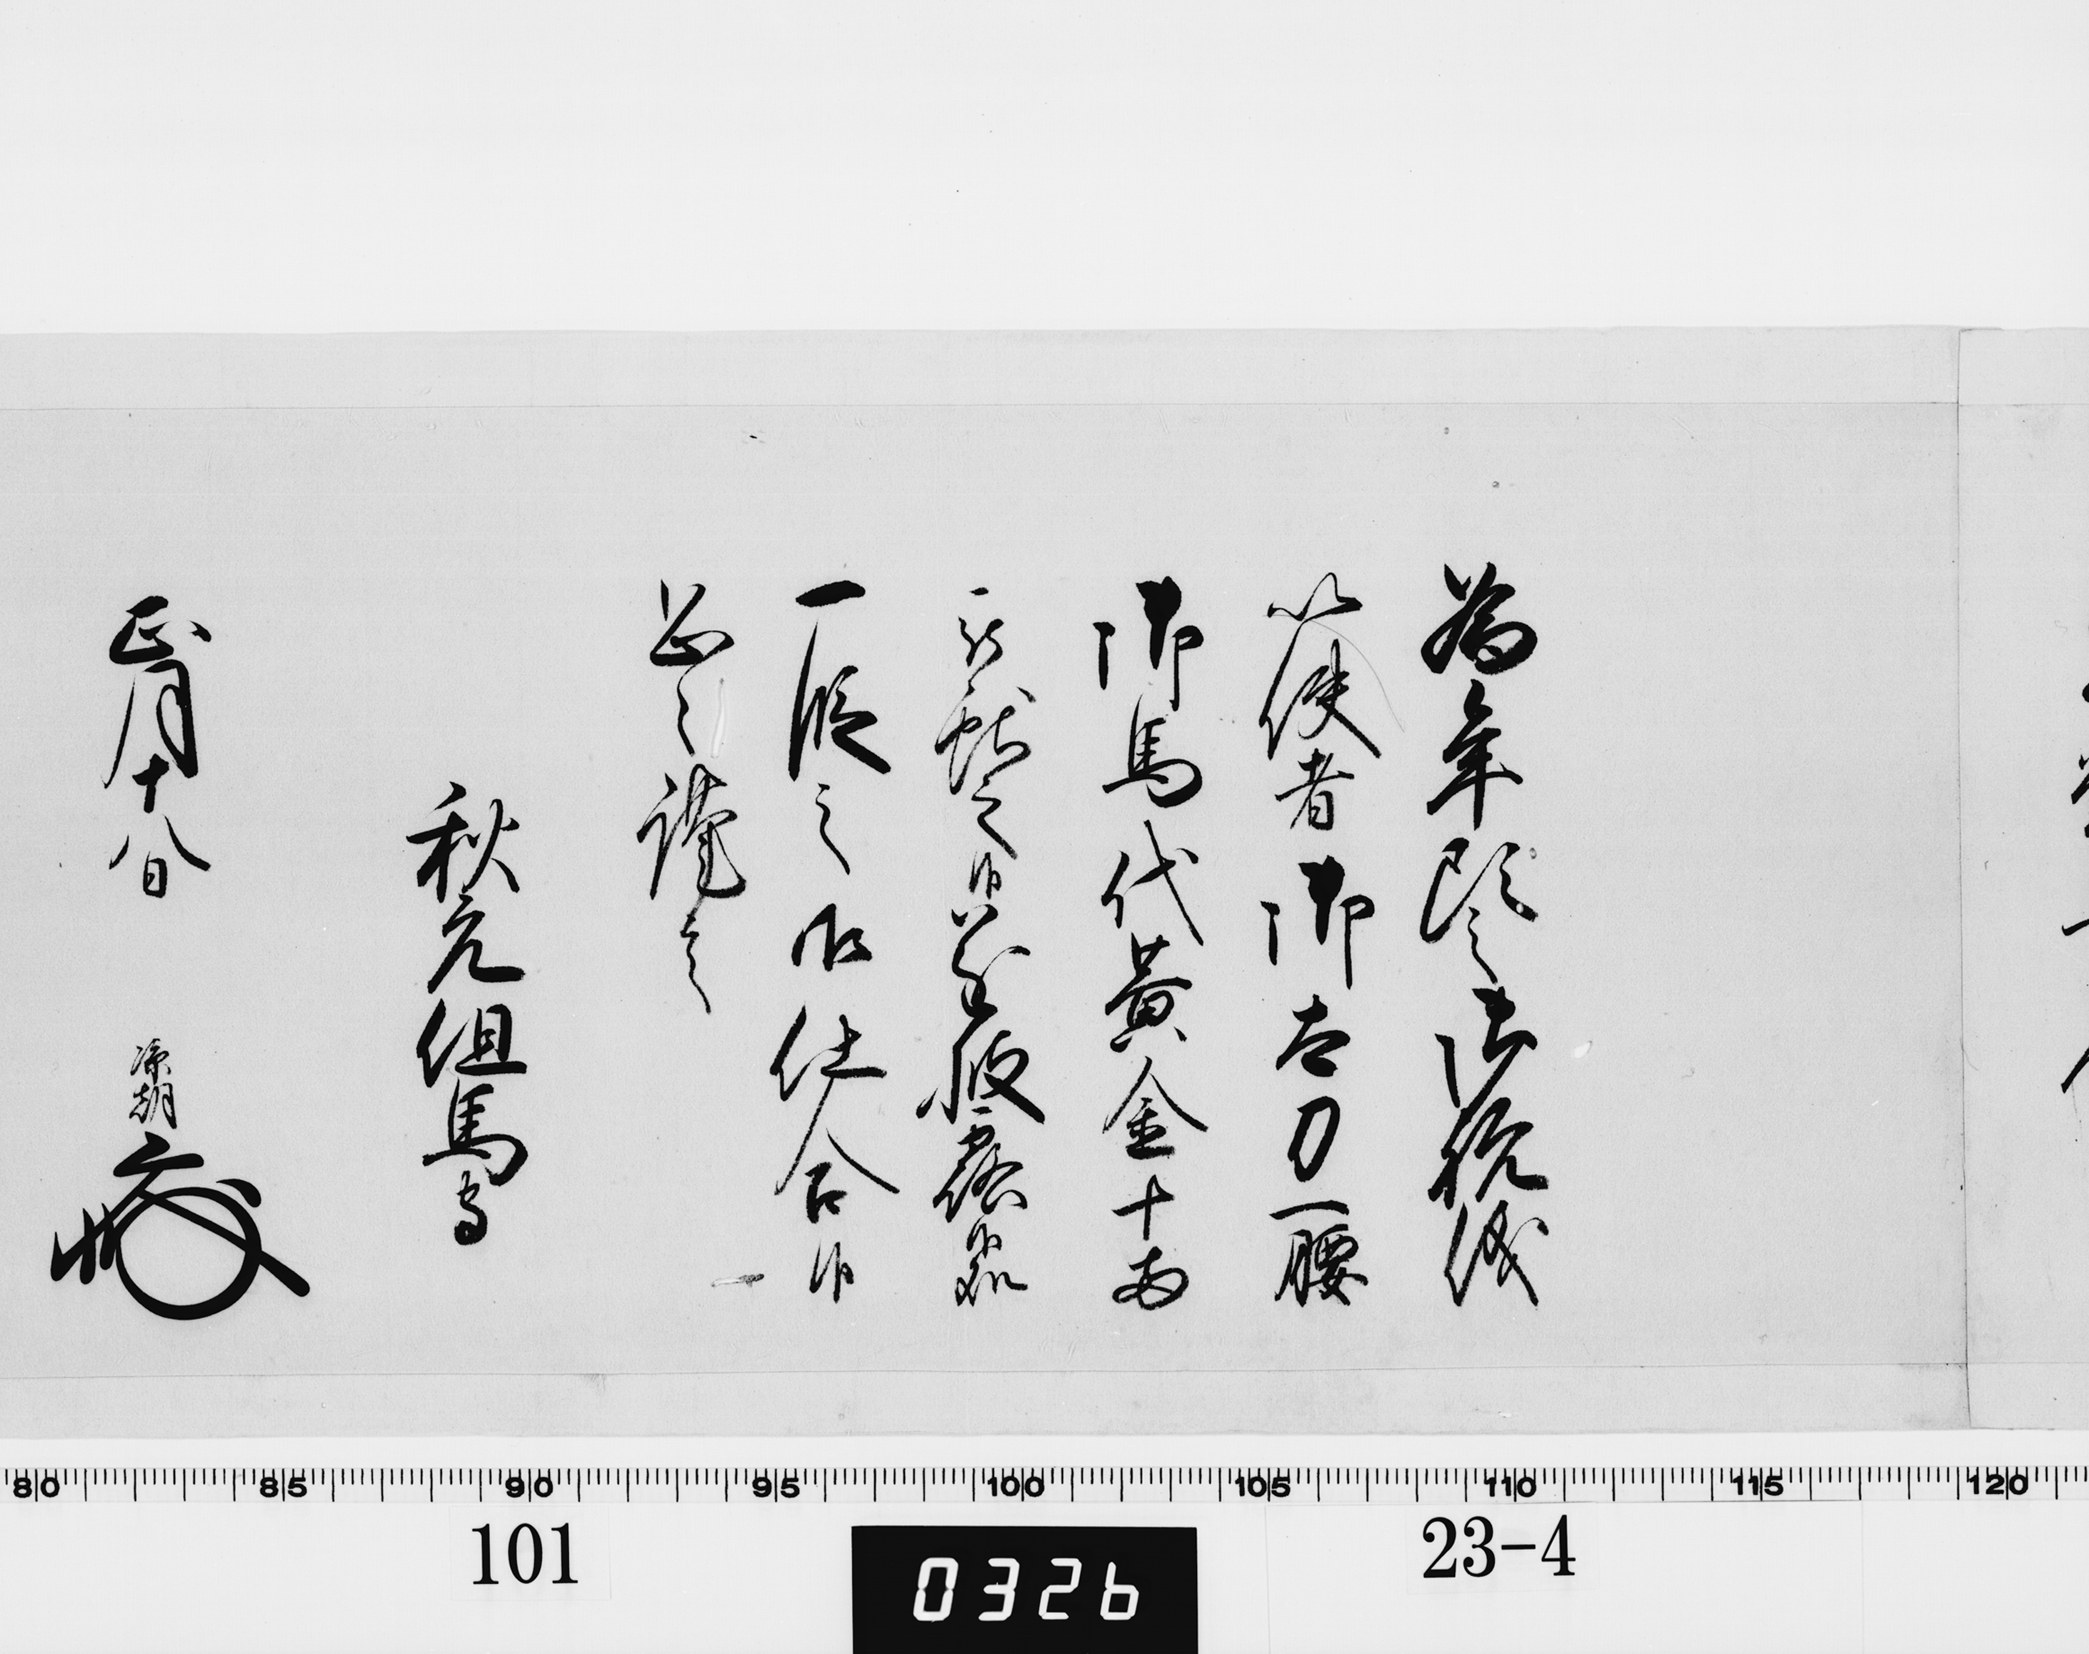 為年頭之御祝儀
以使者御太刀一腰
御馬代黄金十両
被献之候遂披露候処
一段之御仕合候
恐々謹言
秋元但馬守
正月十八日 凉朝
101
0326
23-4
80 85 90 95 100 105 110 115 120